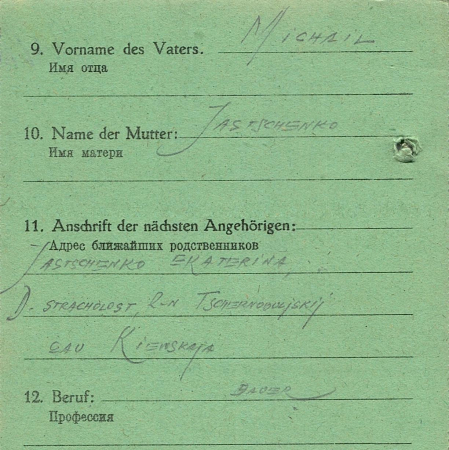 9. Vorname des Vaters. MICHAIL
Имя отца
10. Name der Mutter: JASTSCHENKO
Имя матери
11. Anschrift der nächsten Angehörigen:
Адрес ближайших родственников
JASTSCHENKO EKATERINA,
D. STRACHOLOST, R-N
KIEWSKAJA
12. Beruf: BAUER
Профессия